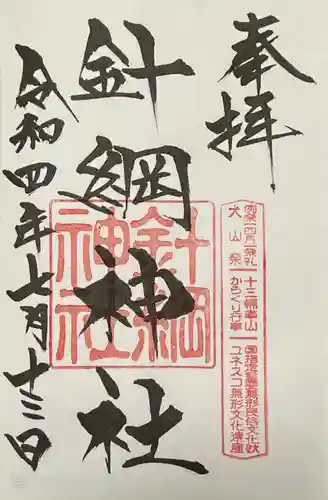 奉拝
針綱神社
令和四年七月十三日
針綱神社
例祭(四月)祭礼
犬山祭
十三輛車山
からくり行事
国指定重要無形民俗文化財
ユネスコ無形文化遺産